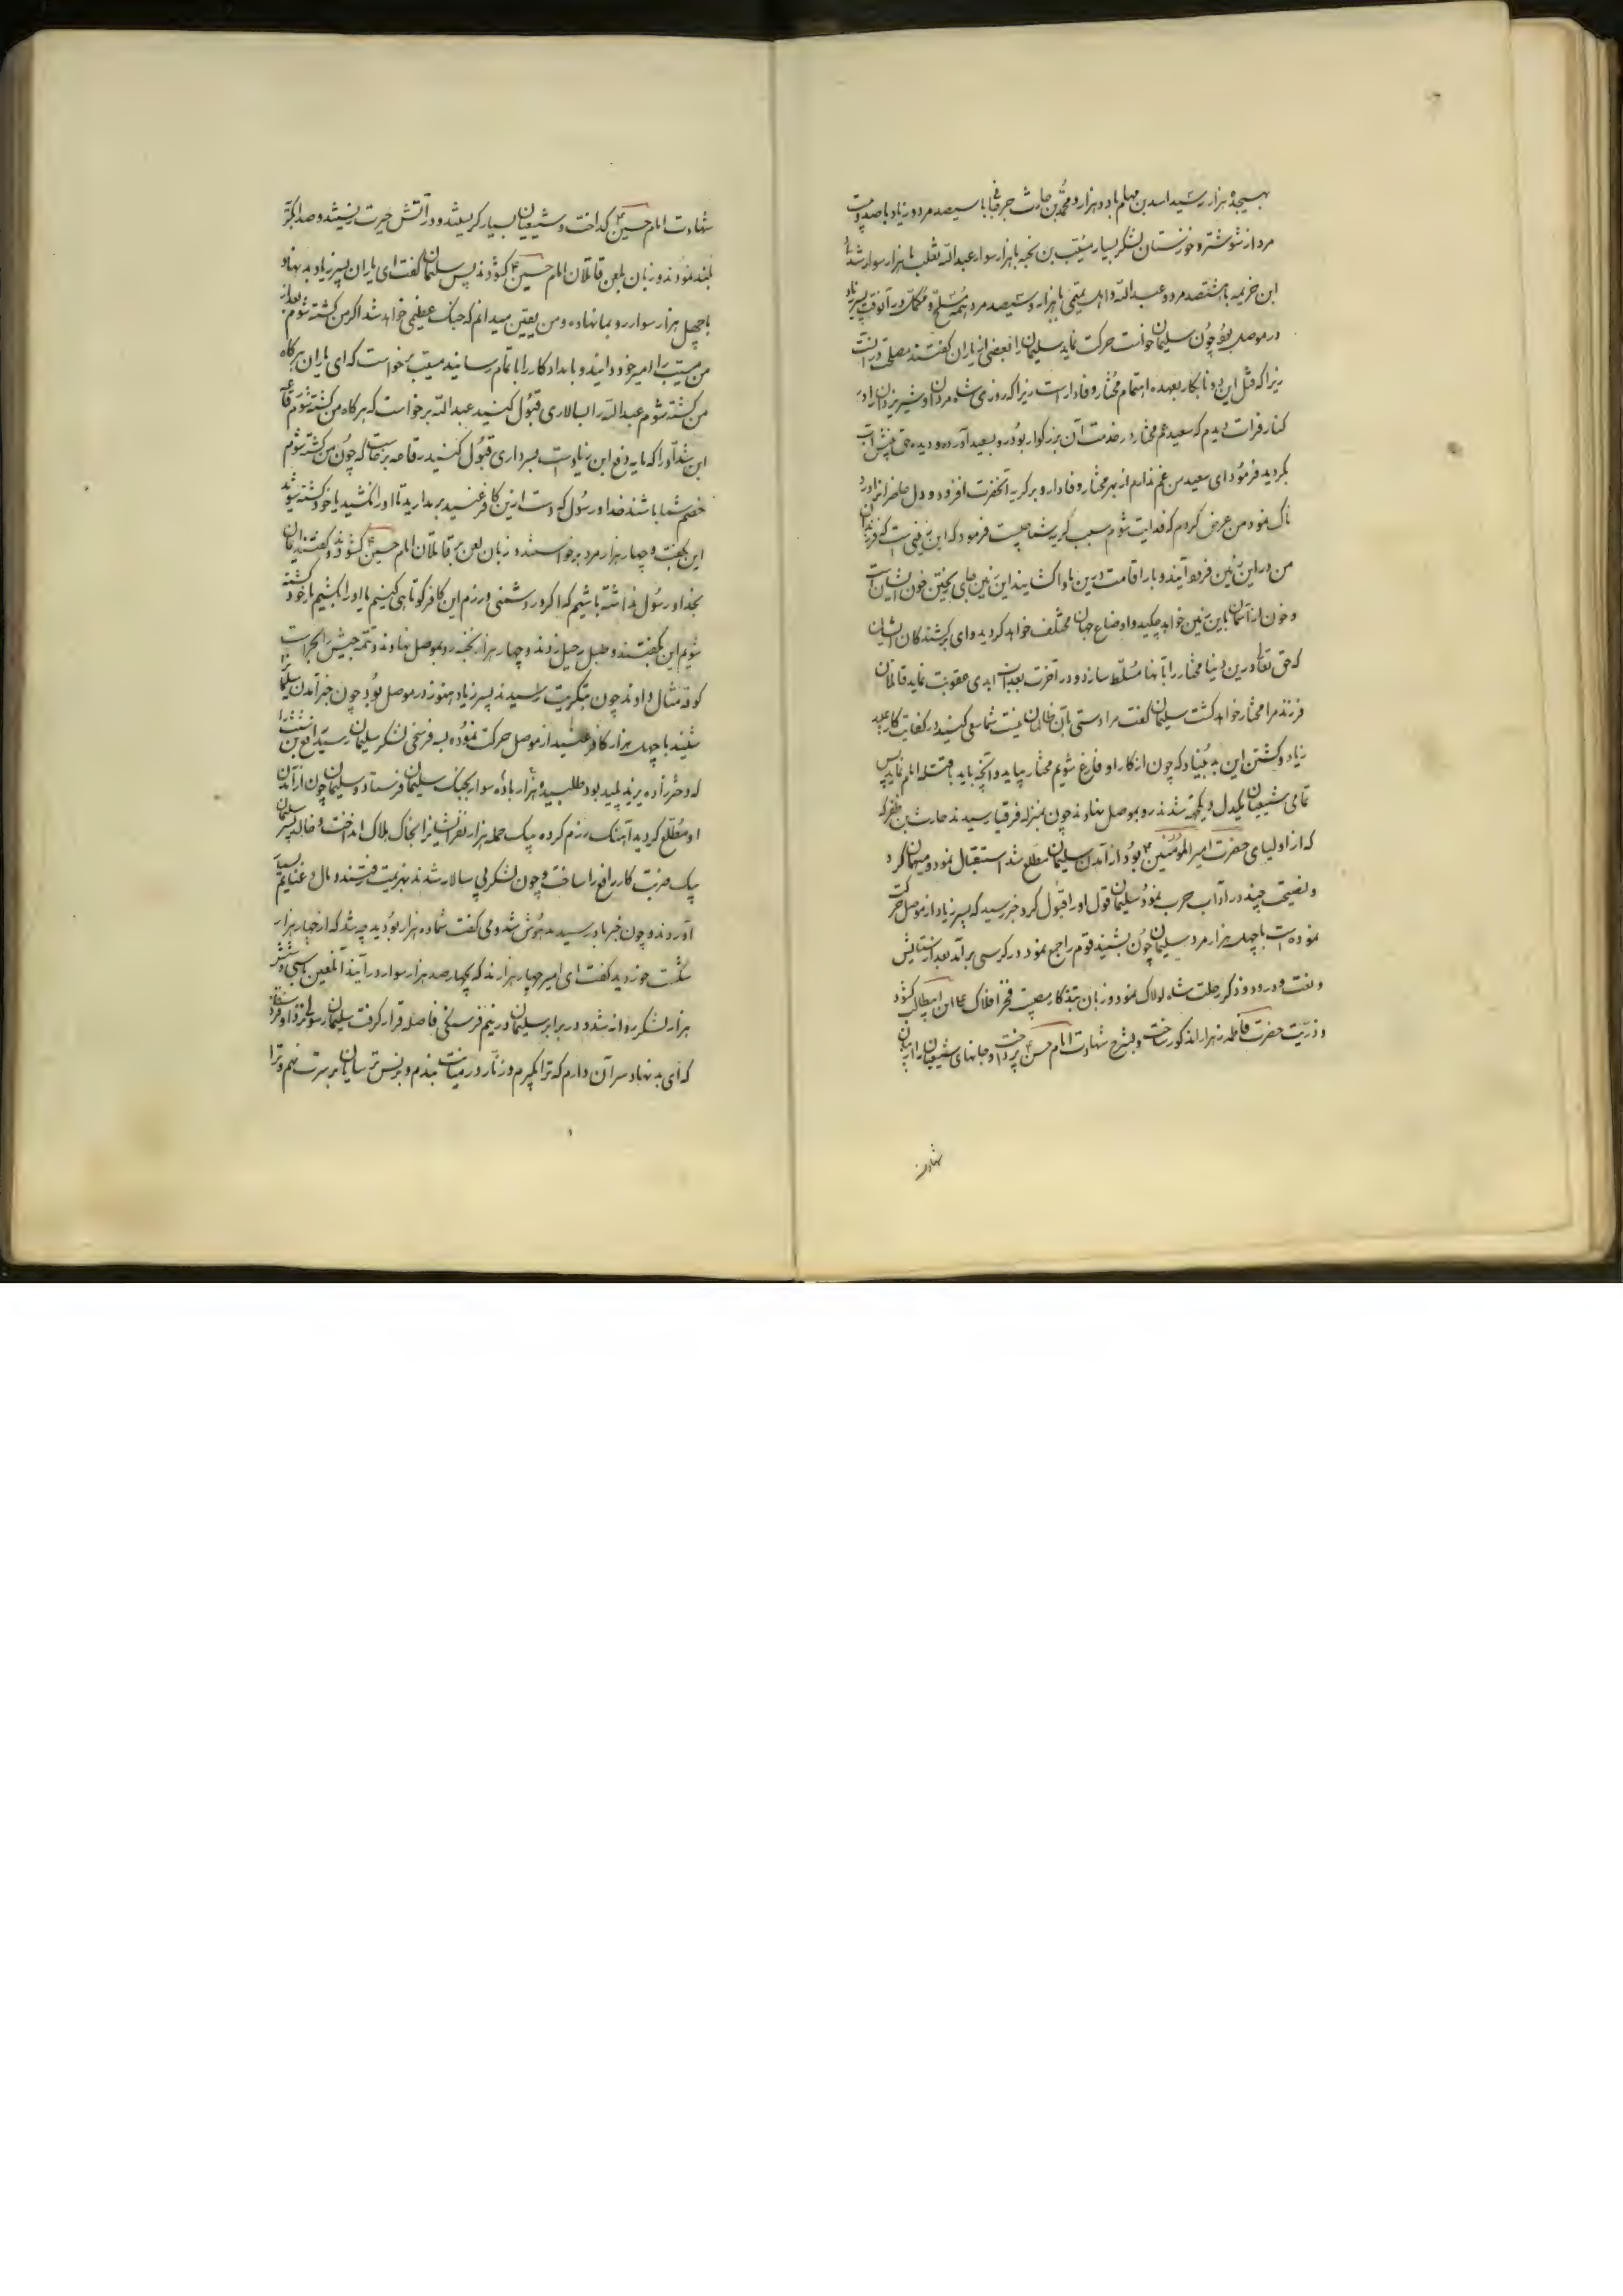 بهیجده هزار رسید اسد بن مهلم با دو هزار و محمد بن حارث جرفانی با سیصد مرد و زیاد با صد و بیست
مرد از شوشتر و خوزستان لشکر بسیار مسیب بن نخبه با هزار سوار عبدالله ثعلب با هزار سوار شداد
ابن خزیمه با هشتصد مرد و عبدالله و اهب یتمی با هزار و سیصد مرد همه مسلح و مکمل و در آنوقت پسر زیاد
در موصل بود چون سلیمان خواست حرکت نماید سلیمان را بعضی از یاران گفتند مصلحت در این نیست
زیرا که قتل این دو نابکار بعهده اهتمام مختار وفادار است زیرا که روزی شاه مردان و شیر یزدان را در
کنار فرات دیدم که سعید عم مختار در خدمت آن بزرگوار بود رو بسعید آورده و دیده حق بینش پر آب
گردید فرمود ای سعید من غم ندارم از بهر مختار وفادار و بر گریه آنحضرت افزود و دل حاضرانرا درد
ناک نمود من عرض کردم که فدایت شوم سبب گریه شما چیست فرمود که این زمینی است که فرزندان
من در این زمین فرود آیند و بار اقامت در این بادا کشایند این زمین جای ریختن خون ایشان است
و خون از آسمان باین زمین خواهد چکید و اوضاع جهان مختلف خواهد گردید وای بر کشندگان ایشان
که حق تعالی در این دنیا مختار را بآنها مسلط سازد و در آخرت بعذاب ابدی عقوبت نماید قاتلان
فرزند مرا مختار خواهد کشت سلیمان گفت مرا دستی بآن ظالمان نیست شما سعی کنید در کفایت کار عبید
زیاد و کشتن این بد بنیاد که چون از کار او فارغ شویم مختار بیاید و آنچه باید با قتله امام نماید پس
تمامی شیعیان یکدل و یکجهة شدند رو بموصل نهادند چون بمنزله فرقیا رسیدند حارث بن ظفر که
که از اولیای حضرت امیر المؤمنین ع بود از آمدن سلیمان مطلع شد استقبال نمود و میهمان کرد
و نصیحتی چند در آداب حرب نمود سلیمان قول او را قبول کرد خبر رسید که پسر زیاد از موصل حرکت
نموده است با چهل هزار مرد سلیمان چون بشنید قوم را جمع نمود در کرسی برآمد بعد از ستایش
و نعت و درود و ذکر رحلت شاه لولاک نمود و زبان بتذکار مصیبت فخر افلاک علی ابن ابیطالب گشود
و ذریت حضرت فاطمه زهرا را مذکور ساخت و بشرح شهادت امام حسن ع پرداخت و جانهای شیعیان را از بیان
شهادت
شهادت امام حسین ع گداخت و شیعیان بسیار گریستند و در آتش حیرت زیستند و صدا بگریه
بلند نمودند و زبان بلعن قاتلان امام حسین ع گشودند پس سلیمان گفت ای یاران پسر زیاد بد نهاد
با چهل هزار سوار رو بما نهاده و من یقین میدانم که جنگ عظیمی خواهد شد اگر من کشته شوم بعد از
من مسیب را امیر خود دانید و با مداد کار را باتمام رسانید مسیب برخواست که ای یاران هرگاه
من کشته شوم عبدالله را بسالاری قبول کنید عبدالله برخواست که هرگاه من کشته شوم رفاعه
ابن شداد را که مایه دفع ابن زیاد است بسرداری قبول کنید رفاعه برخاست که چون من کشته شوم
خصم شما باشند خدا و رسول که دست از این کافر عنید برندارید تا او را نکشید یا خود کشته شوید
این بگفت و چهار هزار مرد برخواستند و زبان لعن بر قاتلان امام حسین ع گشودند و گفتند ایمان
بخدا و رسول نداشته باشیم که اگر در دشمنی و رزم این کافر کوتاهی کنیم یا او را بکشیم یا خود کشته
شویم این بگفتند و طبل رحیل زدند و چهار هزار نخبه رو بموصل نهادند و تتمه جیش را بحراست
کوفه مثال دادند چون بتکریت رسیدند پسر زیاد هنوز در موصل بود چون خبر آمدن سلیمان را
شنید با چهل هزار کافر عنید از موصل حرکت نموده بسه فرسخی لشکر سلیمان رسید رافع بن
که دختر زاده یزید پلید بود طلبید و هزار باده سوار بجنگ سلیمان فرستاد و سلیمان چون از آمدن
او مطلع گردید آهنگ رزم کرده بیک حمله هزار نفر ایشانرا بخاک هلاک انداخت و خالد پسر سلیمان
بیک ضربت کار رافع را ساخت و چون لشکر بی سالار شدند بهزیمت رفتند و مال و غنایم بسیار
آوردند و چون خبر باو رسید مدهوش شد و می گفت شما ده هزار بودید چه شد که از چهار هزار
شکست خوردید گفت ای امیر چهار هزارند که بچهار صد هزار سوار درآیند آنلعین با سی و شش
هزار لشکر روانه شد و در برابر سلیمان در نیم فرسنگی فاصله قرار گرفت سلیمان رسولی نزد او فرستاد
که ای بد نهاد سر آن دارم که ترا بگیرم و زنار در میانت بندم و برنس ترسایان بر سرت نهم و ترا